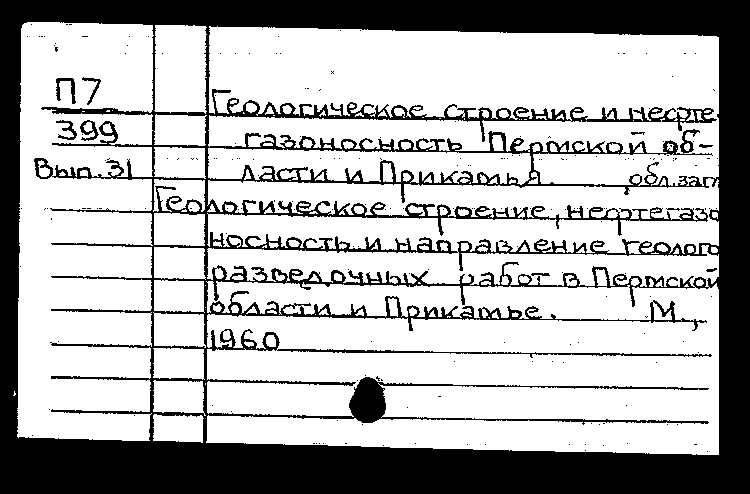 П7
399
Вып. 31
Геологическое строение и нефте-
газоносность Пермской об-
ласти и Прикамья. обл.заг
Геологическое строение, нефтегазо
носность и направление геолого
разведочных работ в Пермской
области и Прикамье. М.,
1960